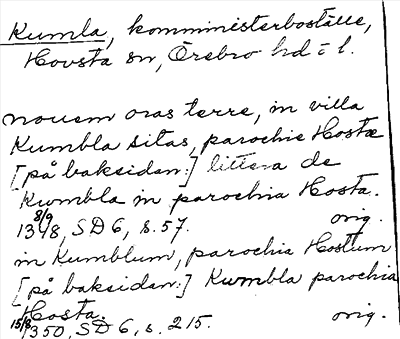 Kumla, komministerboställe,
Hovsta sn, Örebro hd o l.
nouem oras terre, in villa
Kumbla sitas, parochie Hostæ
[på baksidan:] littera de
Kwmbla in parochia Hosta.
8/9 1348, SD 6, s. 57. orig.
in Kumblum, parochia Hostum
[på baksidan:] Kwmbla parochia
Hosta.
15/8 1350, SD 6, s. 215. orig.